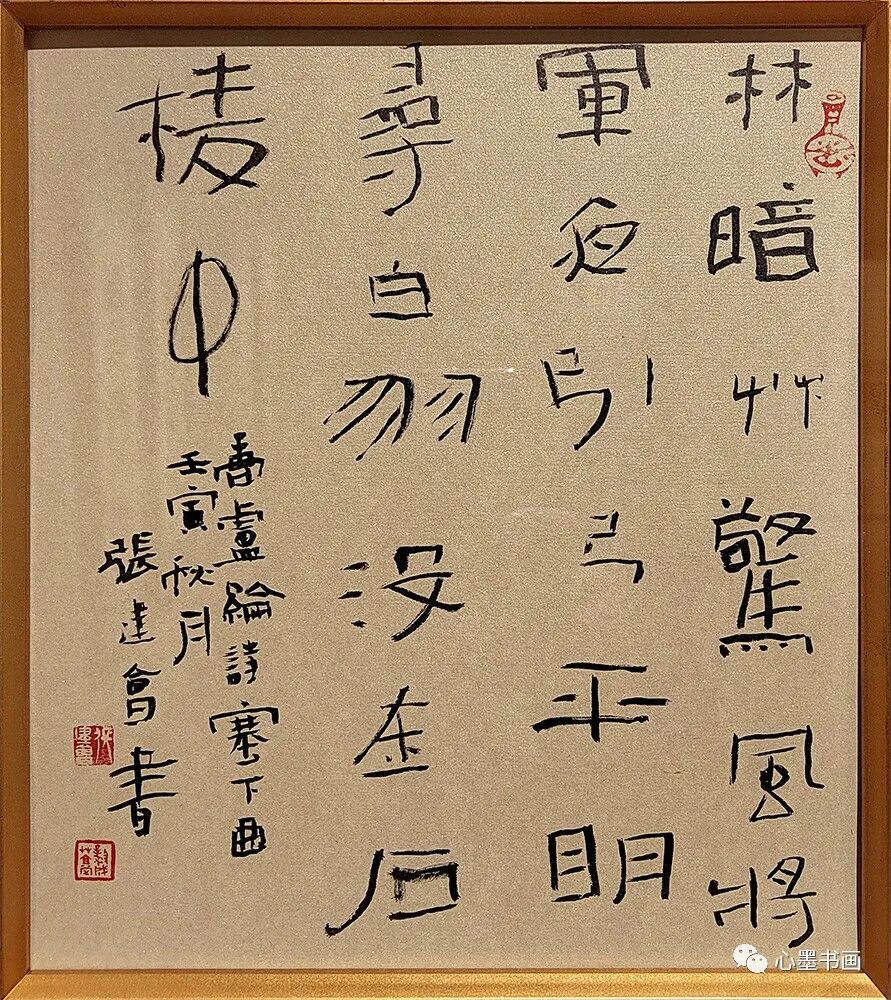 林暗艸驚風將
軍夜引弓平明
尋白羽沒在石
棱中
唐盧綸詩塞下曲
壬寅秋月
張建會書
心墨书画